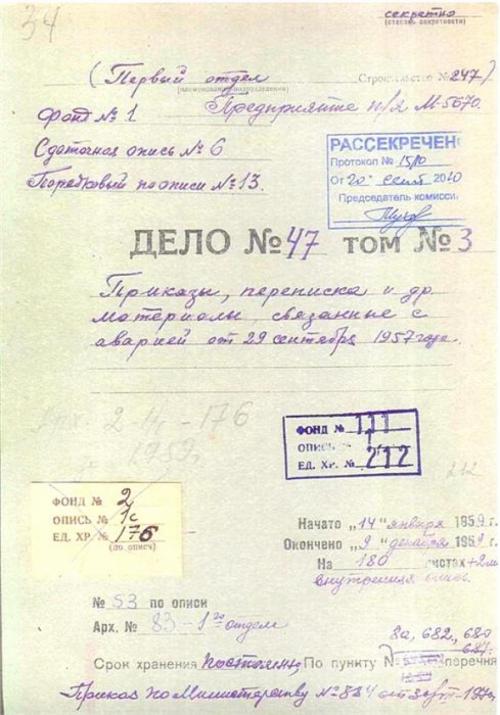 34
секретно
(степень секретности)
(Первый отдел
Строительство №247)
(наименование подразделения)
Предприятие п/я М-5670.
Фонд №1
Сдаточная опись №6
Порядковый по описи №13.
РАССЕКРЕЧЕНО
Протокол № 15/10
От 20 сент 2010
Председатель комиссии
ДЕЛО №47 том №3
Приказы, переписка и др
материалы, связанные с
аварией от 29 сентября 1957 года.
2-1с-176
1959г
ФОНД № 111
ОПИСЬ № 1
ЕД. ХР. № 212
212
ФОНД № 2
ОПИСЬ № 1с
ЕД. ХР. № 176
(по описи)
Начато „14" января 1959 г.
Окончено „9" декабря 1959 г.
На 180 листах +2л
внутренняя опись
№ 53 по описи
Арх. № 83-1го отдел
8а, 682, 680
Срок хранения постоянно, По пункту № перечня
Приказ по Министерству №834